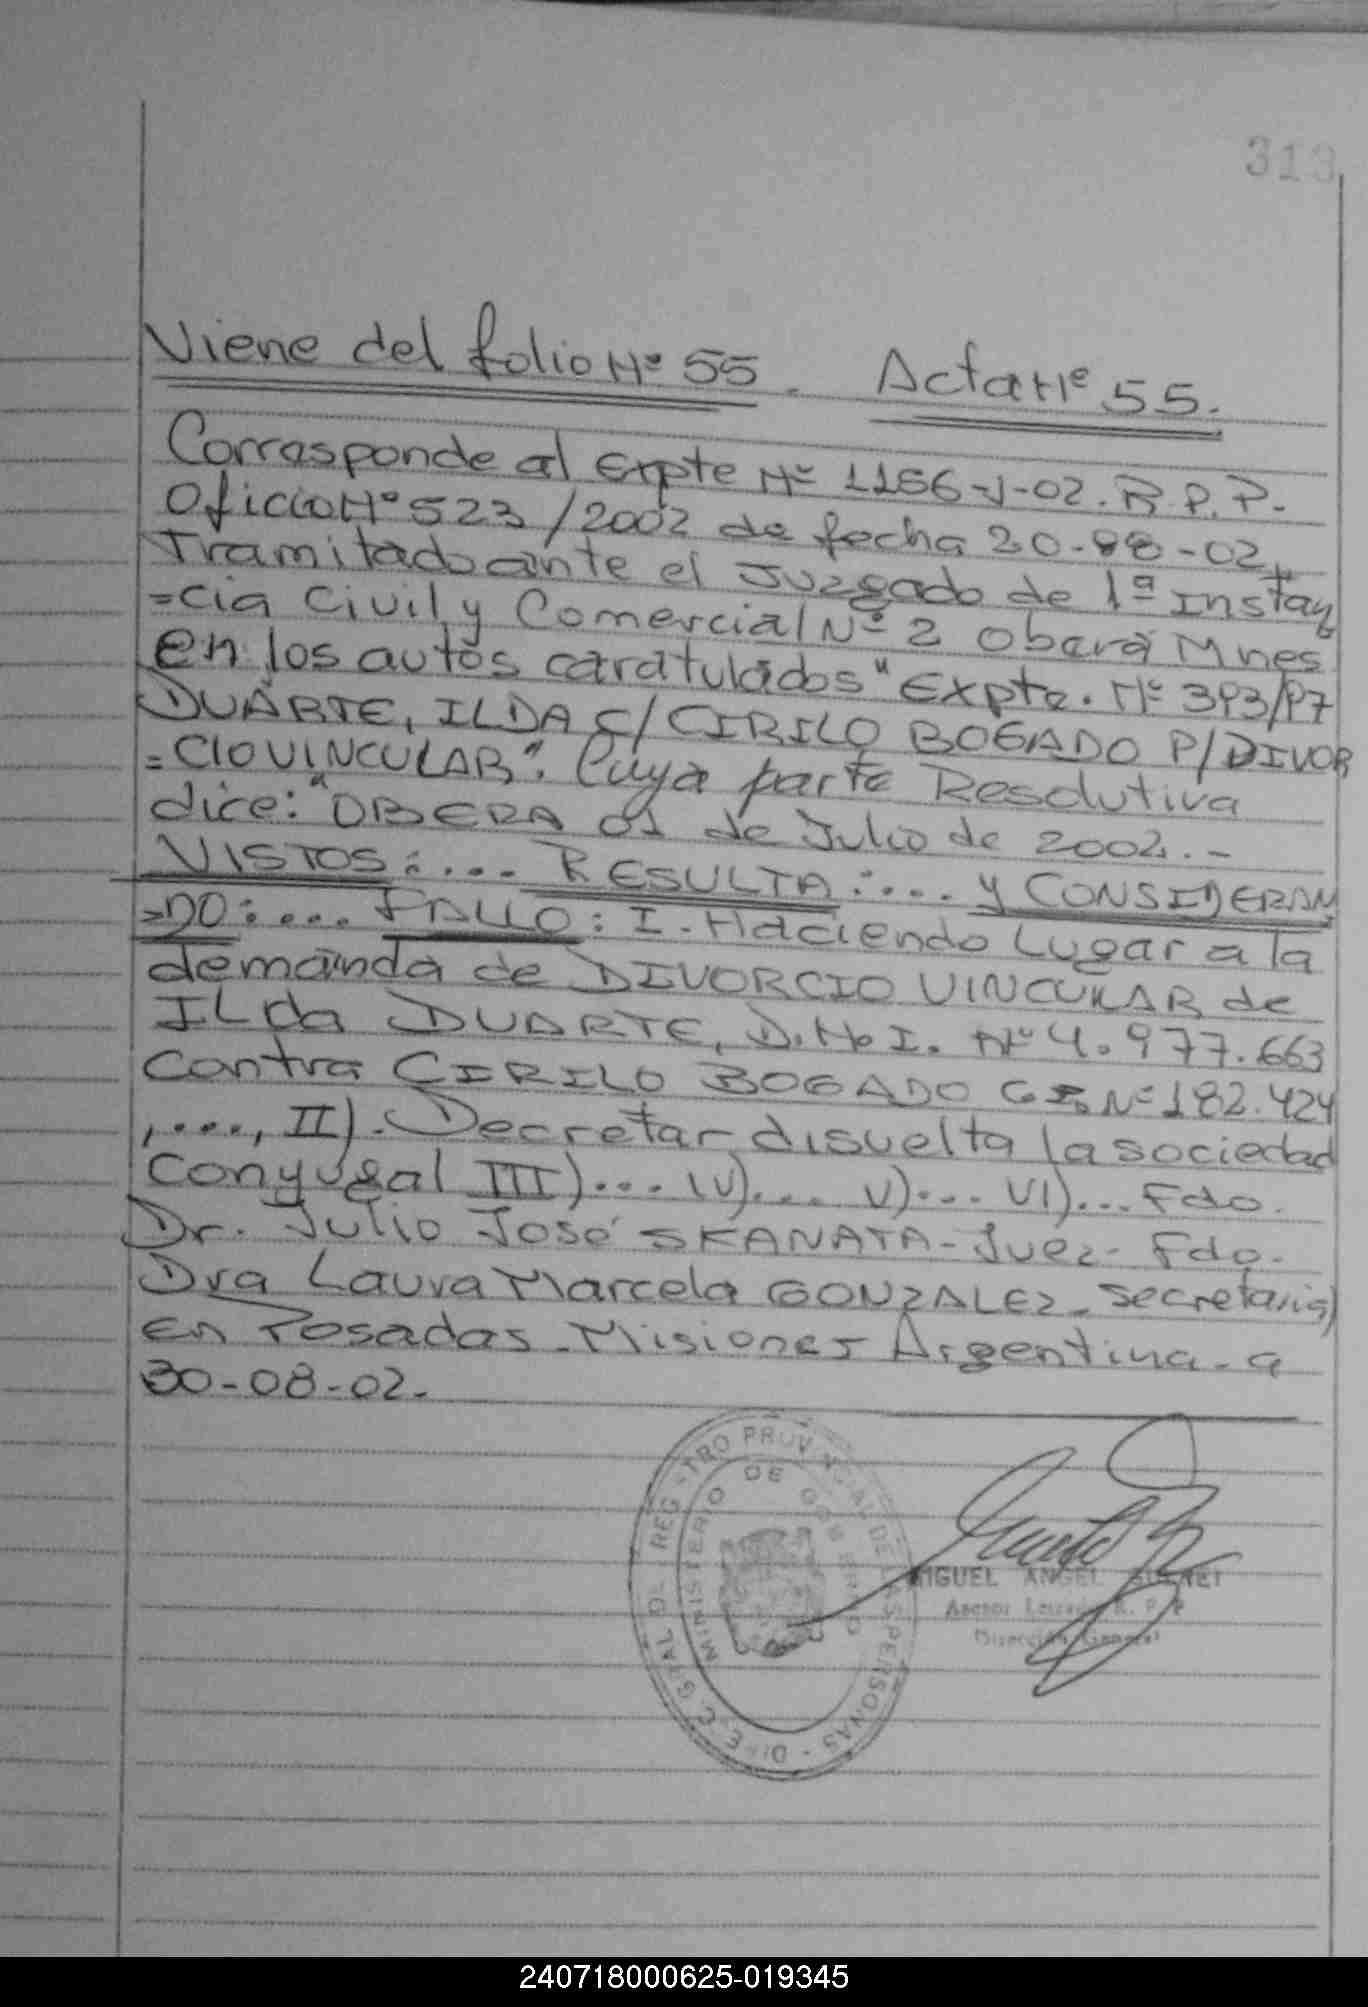 313
Viene del folio Nº 55. Acta Nº 55.
Corresponde al Expte Nº 1156-J-02. R.P.P.
Oficio Nº 523/2002 de fecha 20-08-02,
Tramitado ante el Juzgado de 1ª Instan
=cia Civil y Comercial Nº 2 Oberá Mnes
en los autos caratulados "Expte. Nº 393/97
DUARTE, ILDA C/ CIRILO BOGADO P/DIVOR
=CIO VINCULAR". Cuya parte Resolutiva
dice: "OBERA 01 de Julio de 2002.-
VISTOS:... RESULTA:.... y CONSIDERAN
=DO:.... FALLO: I. Haciendo Lugar a la
demanda de DIVORCIO VINCULAR de
ILda DUARTE, D.N.I. Nº 4.977.663
Contra CIRILO BOGADO C.I. Nº 182.424
,...., II). Decretar disuelta la sociedad
Conyugal III)... IV).... V)... VI)... Fdo.
Dr. Julio José SKANATA-Juez- Fdo.
Dra Laura Marcela GONZALEZ-Secretaria)
En Posadas-Misiones Argentina-a
30-08-02.
REGISTRO PROVINCIAL DE LAS PERSONAS - DIREC. GRAL DE
MINISTERIO DE GOBIERNO
MIGUEL ANGEL
Asesor Letrado R. P. P.
Dirección General
240718000625-019345